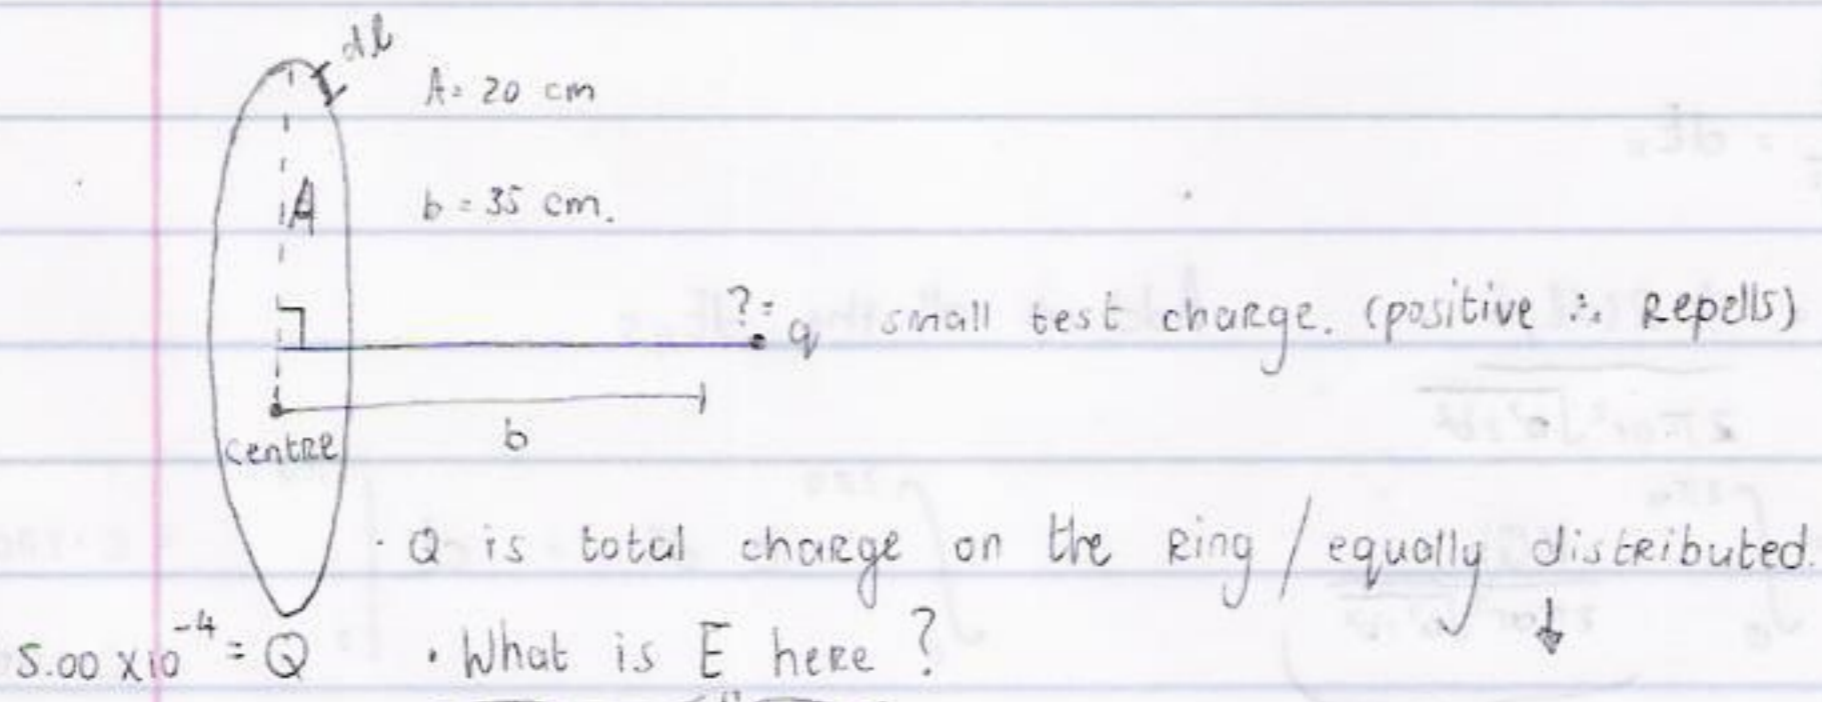 dl
A = 20 cm
A
b = 35 cm.
?= q small test charge. (positive ∴ Repells)
b
centre
· Q is total charge on the Ring / equally distributed.
5.00 x10⁻⁴ = Q · What is E here?